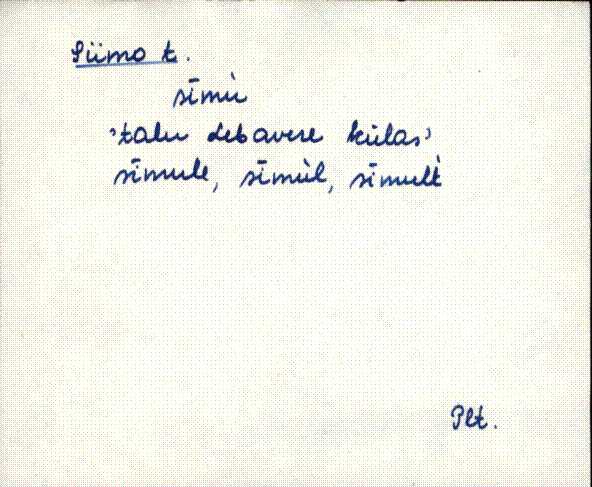 Siimo t.
sīmù
'talu Lebavere külas'
sīmule, sīmùl, sīmult̀
Plt.